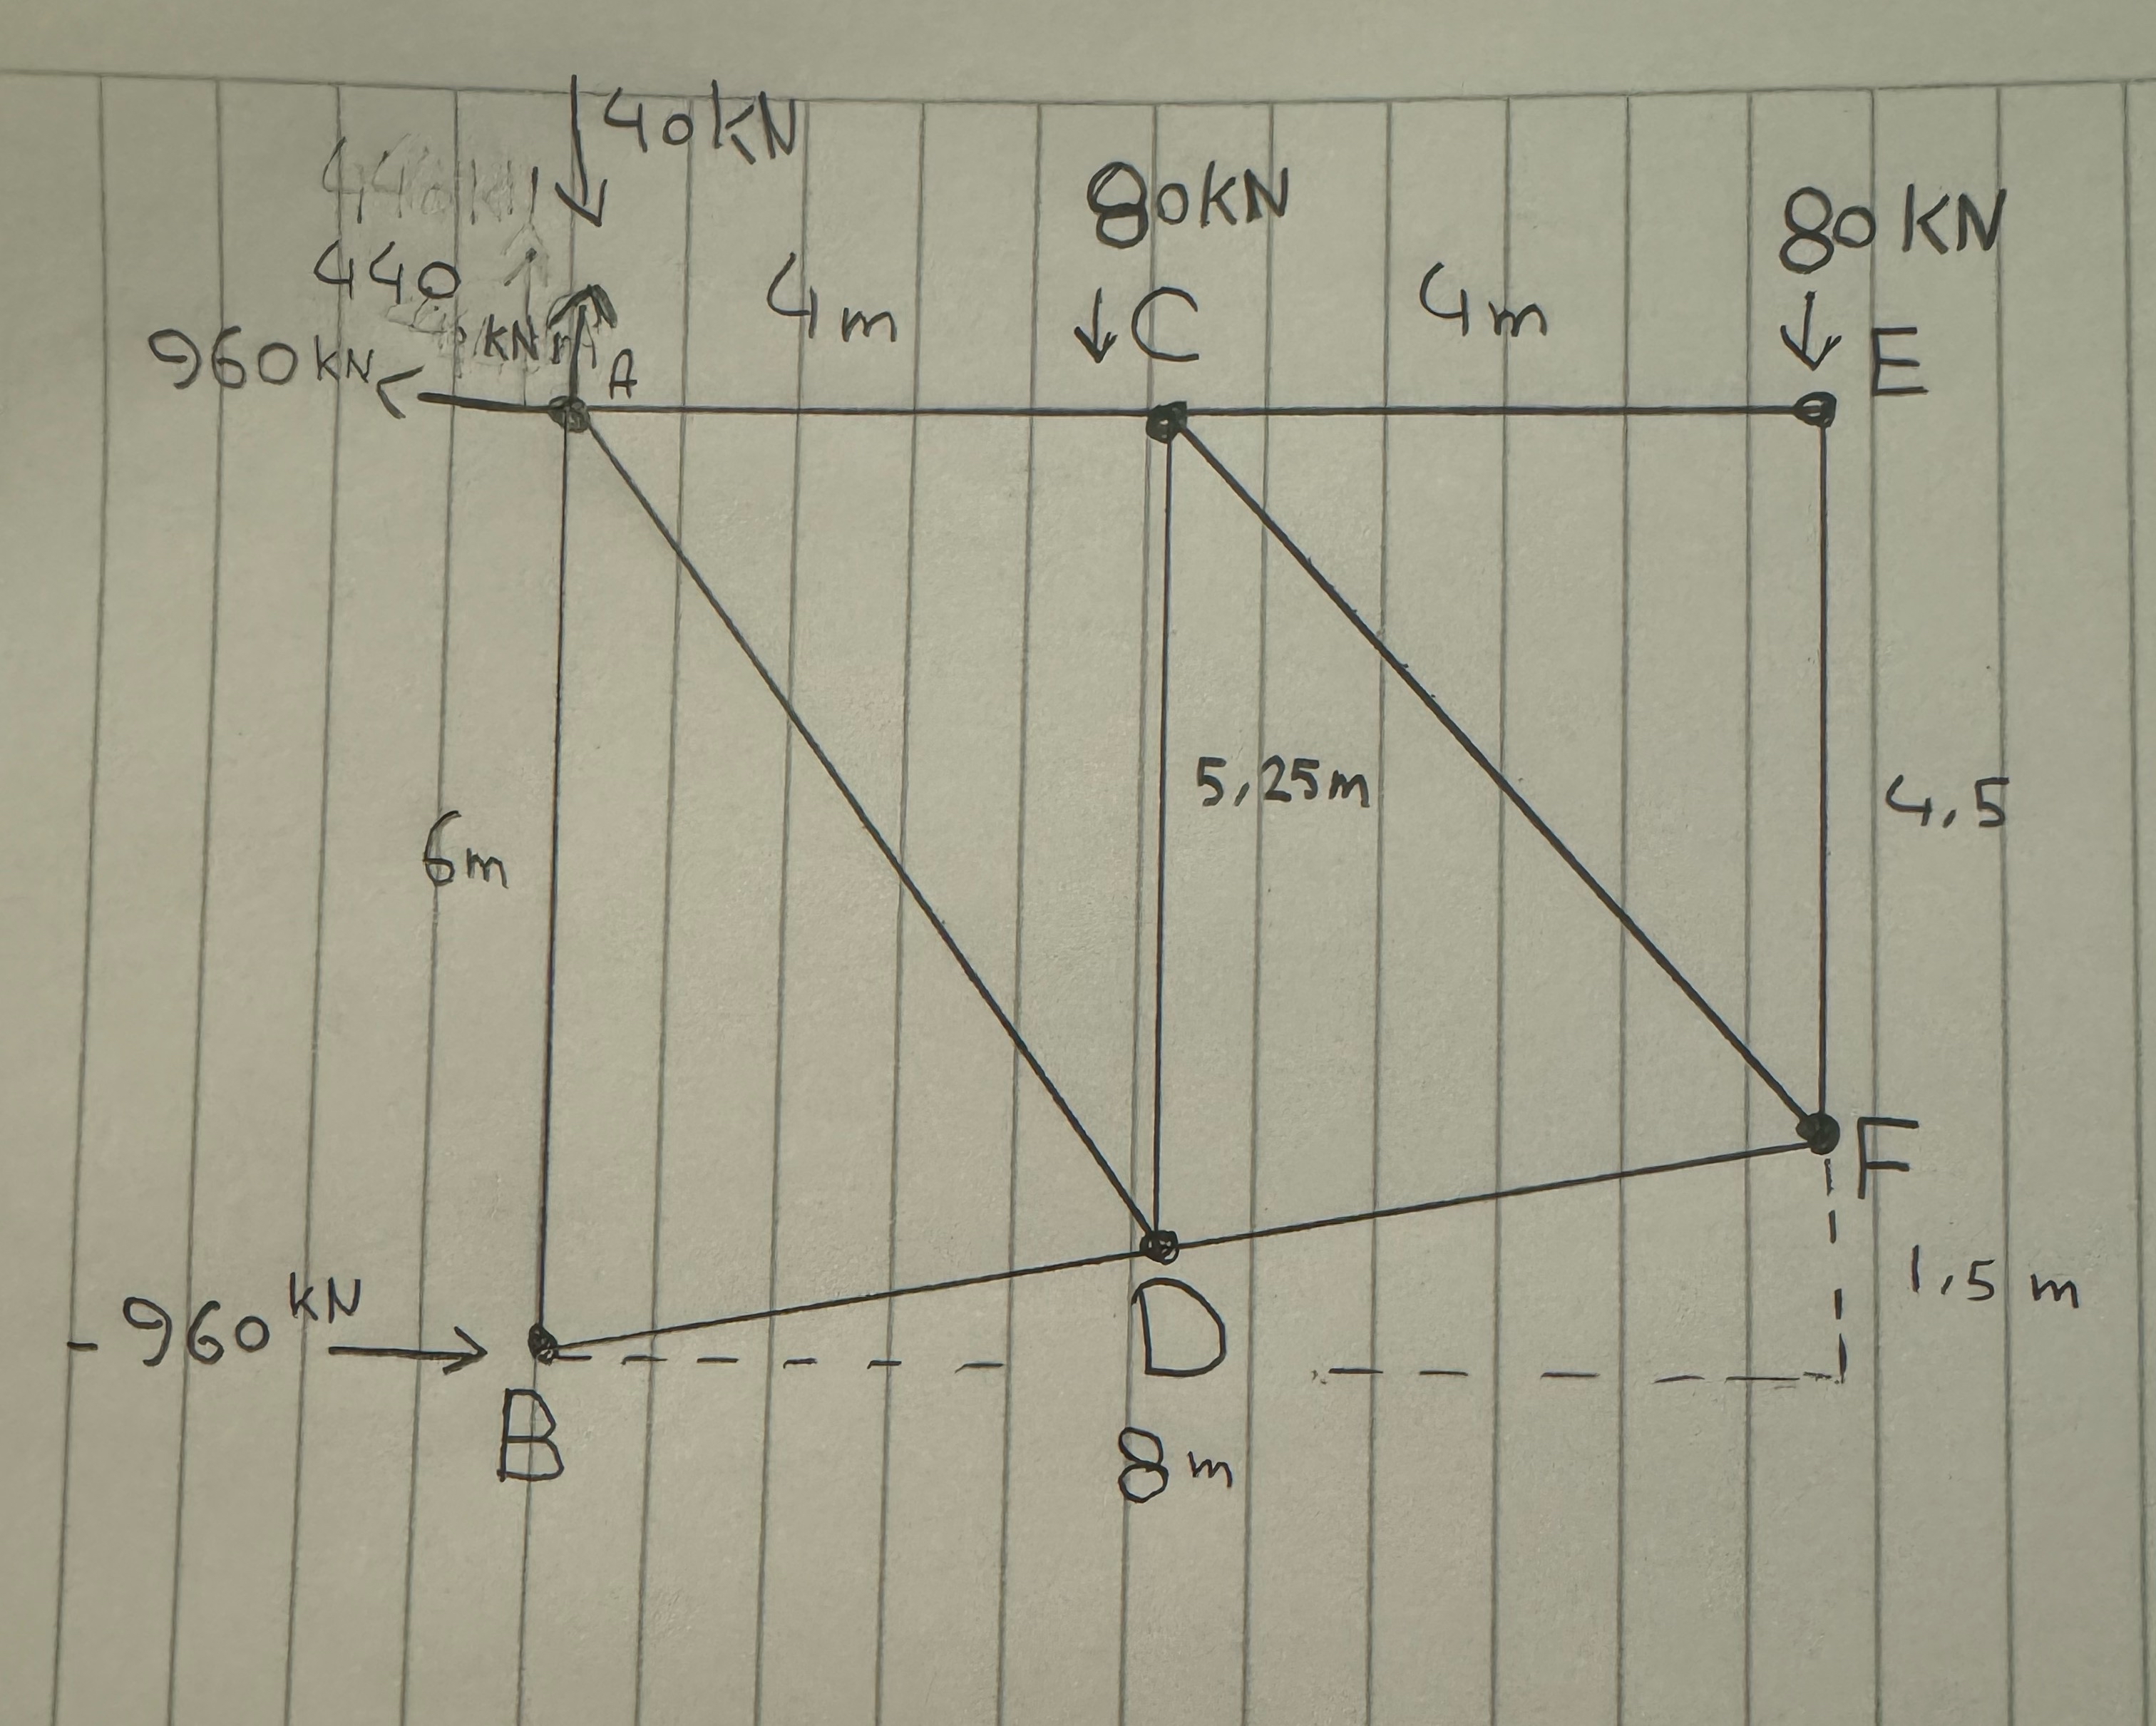 40kN
440kN
80kN
80 KN
440
4m
4m
C
kN
960kN
A
E
5,25m
4,5
6m
F
1,5 m
-960 kN
D
B
8m